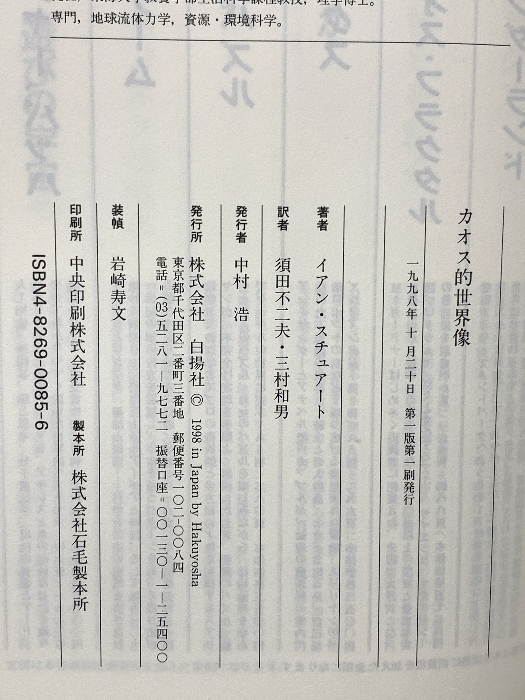 専門，地球流体力学，資源・環境科学。
カオス的世界像
一九九八年 十 月二十日　第一版第一刷発行
著者　イアン・スチュアート
訳者　須田不二夫・三村和男
発行者　中村　浩
発行所　株式会社　白揚社 © 1998 in Japan by Hakuyosha
東京都千代田区二番町三番地　郵便番号一〇二-〇〇八四
電話＝(03)五二八一―九七七二　振替口座＝〇〇一三〇―一―二五四〇〇
装幀　岩崎寿文
印刷所　中央印刷株式会社　製本所　株式会社石毛製本所
ISBN4-8269-0085-6